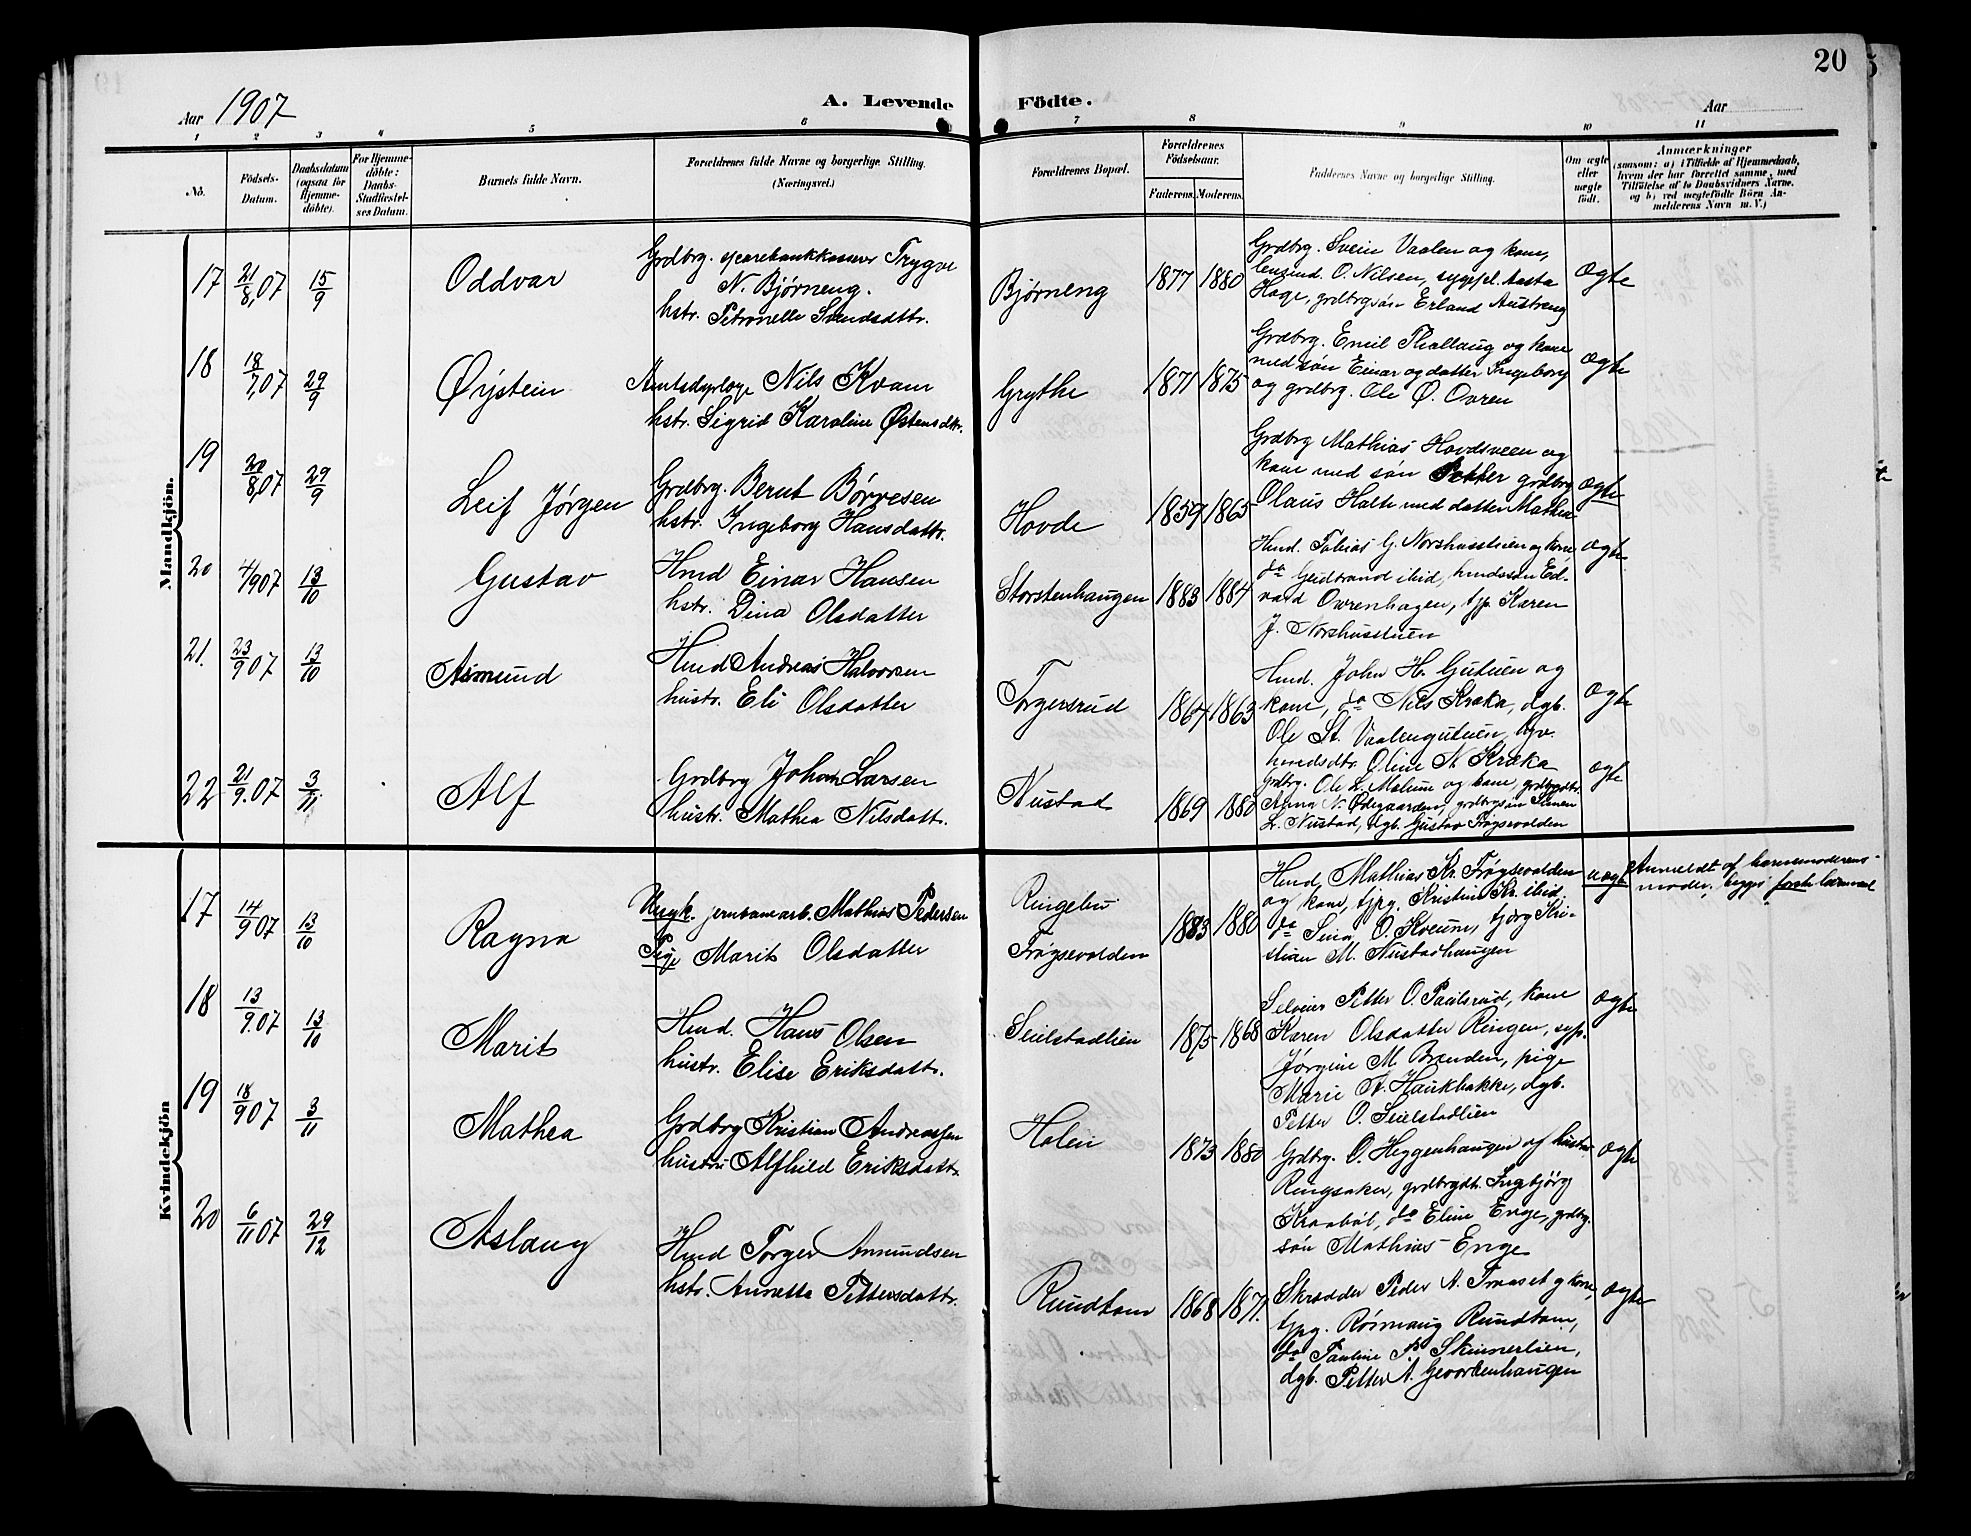 20
Aar 1907
A. Levende Födte.
Aar
1 2 3 4 5 6 7 8 9 10 11
No.
Födsels-
Datum.
Daabsdatum
(ogsaa for
Hjemme-
döbte).
For Hjemme-
döbte:
Daabs-
Stadfæstel-
ses Datum.
Barnets fulde Navn.
Forældrenes fulde Navne og borgerlige Stilling.
(Næringsvei.)
Forældrenes Bopæl.
Forældrenes
Födselsaar.
Faderens. Moderens.
Faddernes Navne og borgerlige Stilling.
Om ægte
eller
uægte
födt.
Anmærkninger
(saasom: a) i Tilfælde af Hjemmedaab,
hvem der har forrettet samme, med
Tilföielse af to Daabsvidners Navne,
og b) ved uægtefödte Börn An-
melderens Navn m. V.)
Mandkjön.
17 21/8,07 15/9 Oddvar
Grdbrg. sparebankkasserer Trygve
N. Bjørneng.
hstr. Petronelle Svendsdttr.
Bjørneng 1877 1880
Grdbrg. Svein Vaalen og kone,
lensmd. O. Nilsen, sygepl. Aasta
Hage, grdbrgsön Erland Austreng
ægte
18 18/7,07 29/9 Øystein
Amtsdyrlæge Nils Kvam
hstr. Sigrid Karoline Østensdtr.
Grythe 1871 1875
Grdbrg. Emil Thallaug og kone
med sön Einar og datter Ingeborg
og grdbrg. Ole Ø. Ovren
ægte
19 20/8,07 29/9 Leif Jørgen
Grdbrg. Bernt Börresen
hstr. Ingeborg Hansdattr.
Hovde 1859 1865
Grdbrg Mathias Hovdsveen og
kone med sön Petter grdbrg
Olaus Holte med datter Mathea
ægte
20 4/907 13/10 Gustav
Hmd Einar Hansen
hstr. Dina Olsdatter
Storstenhaugen 1883 1884
Hmd. Tobias G. Norshusstuen og kone,
do Gudbrand ibid, hmdssön Ed-
vard Ovrenhagen, tjp. Karen
J. Norshusstuen
ægte.
21. 23/9 07 13/10 Asmund
Hmd Andreas Halvorsen
hustr. Eli Olsdatter
Torgersrud 1864 1863
Hmd. John H. Gutuen og
kone, do Nils Kraka, dgb.
Ole St. Vaalengutuen,
hmdsdtr. Oline N. Kraka
ægte
22 21/9.07 3/11 Alf
Grdbrg Johan Larsen
hustr. Mathea Nilsdattr.
Nustad 1869 1880
Grdbrg. Ole L. Melum og kone, grdbrgdtr.
Anna N. Ødegaarden, grdbrgsön Simen
L. Nustad, dgb. Gustav Frøgsevolden
ægte
Kvindekjön
17 14/9 07 13/10 Ragna
Ungk. jernbanearb. Mathias Pedersen
Pige Marit Olsdatter
Ringebu
Frøgsevolden 1883 1880
Hmd. Mathias Kr. Frøgsevolden
og kone, tjpg. Kristine Kr. ibid
do Sina O. Kveum, tjdrg Kri-
stian M. Nustadhaugen
uægte
Anmeldt af barnemoderens
moder, begges første leiermaal
18 13/9.07 13/10 Marit
Hmd. Hans Olsen
hustr. Elise Eriksdattr.
Seielstadlien 1875 1868
Selveier Petter O. Paulsrud, kone
Karen Olsdatter Ringen, syp.
Jørgine M. Brænden, pige
Marie A. Haukbakke, dgb.
Petter O. Seielstadlien
ægte
19 18/907 3/11 Mathea
Grdbrg Kristian Andreassen
hustru Alfhild Eriksdattr.
Holen 1873 1880
Grdbrg. O. Heggenhaugen og hustru
Ringsaker, grdbrgdt. Ingebjörg
Kraabøl, do Eline Enge, grdbrg.
sön Mathias Enge
ægte
20 6/11 07 29/12 Aslaug
Hmd Torger Amundsen
hstr. Annette Pettersdattr.
Rundtom 1868 1871.
Skrædder Peder A. Traaset og kone,
tjpg. Rönnaug Rundtom,
do Pauline P. Skinnerlien,
dgb. Petter A. Gevordenhaugen
ægte